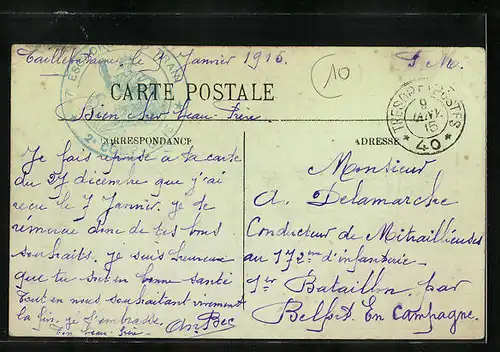 Taillefontaine le Janvier 1915
F. M.
10
CARTE POSTALE
Bien cher beau-frère.
TRESOR ET POSTES
9
JANV.
15
* 40 *
CORRESPONDANCE
ADRESSE
Je fais réponse à ta carte
du 27 décembre que j'ai
recu le 7 Janvier. je te
remercie donc de tes bons
souhaits. je suis heureux
que tu soit en bonne santé
Tout en nous souhaitant vivement
la fin, je t'embrasse.
Ton beau-frère
Monsieur
A. Delamarche
Conducteur de Mitrailleuses
au 172me d'infanterie
1er Bataillon par
Belfort. En Campagne.